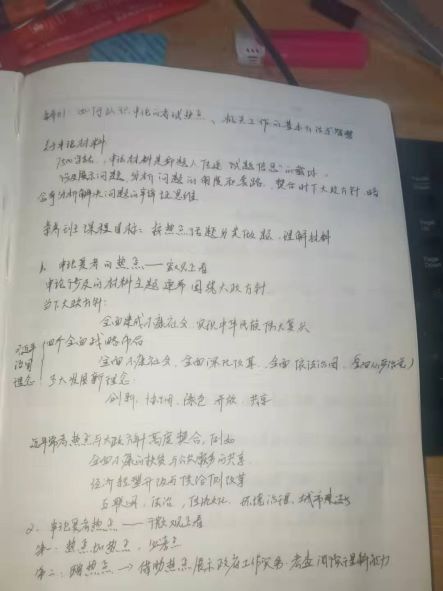 专题1 如何认识申论的考试热点、机关工作的基本方法与智慧
1.与申论材料
申论材料是命题人传达“试题信息”的载体。
以展示问题、分析问题的角度和套路，契合时下大政方针，暗
含有分析解决问题的辩证思维
课程目标：按热点话题分类做题，理解材料
1. 申论爱考的热点——宏观上看
申论涉及的材料主题逐年围绕大政方针
当下大政方针：
全面建成小康社会，实现中华民族伟大复兴
习近平治国理念
四个全面战略布局
全面小康社会、全面深化改革、全面依法治国、全面从严治党
五大发展新理念
创新、协调、绿色、开放、共享
近年常考热点与大政方针高度契合，例如
全面小康的扶贫与公共服务的共享
经济转型升级和供给侧改革
互联网、法治、传统文化、环境治理、城市建设
2. 申论爱考热点——微观上看
第一：热点如热点，
第二：蹭热点 → 借助热点展示政府工作实务，考查 理解能力